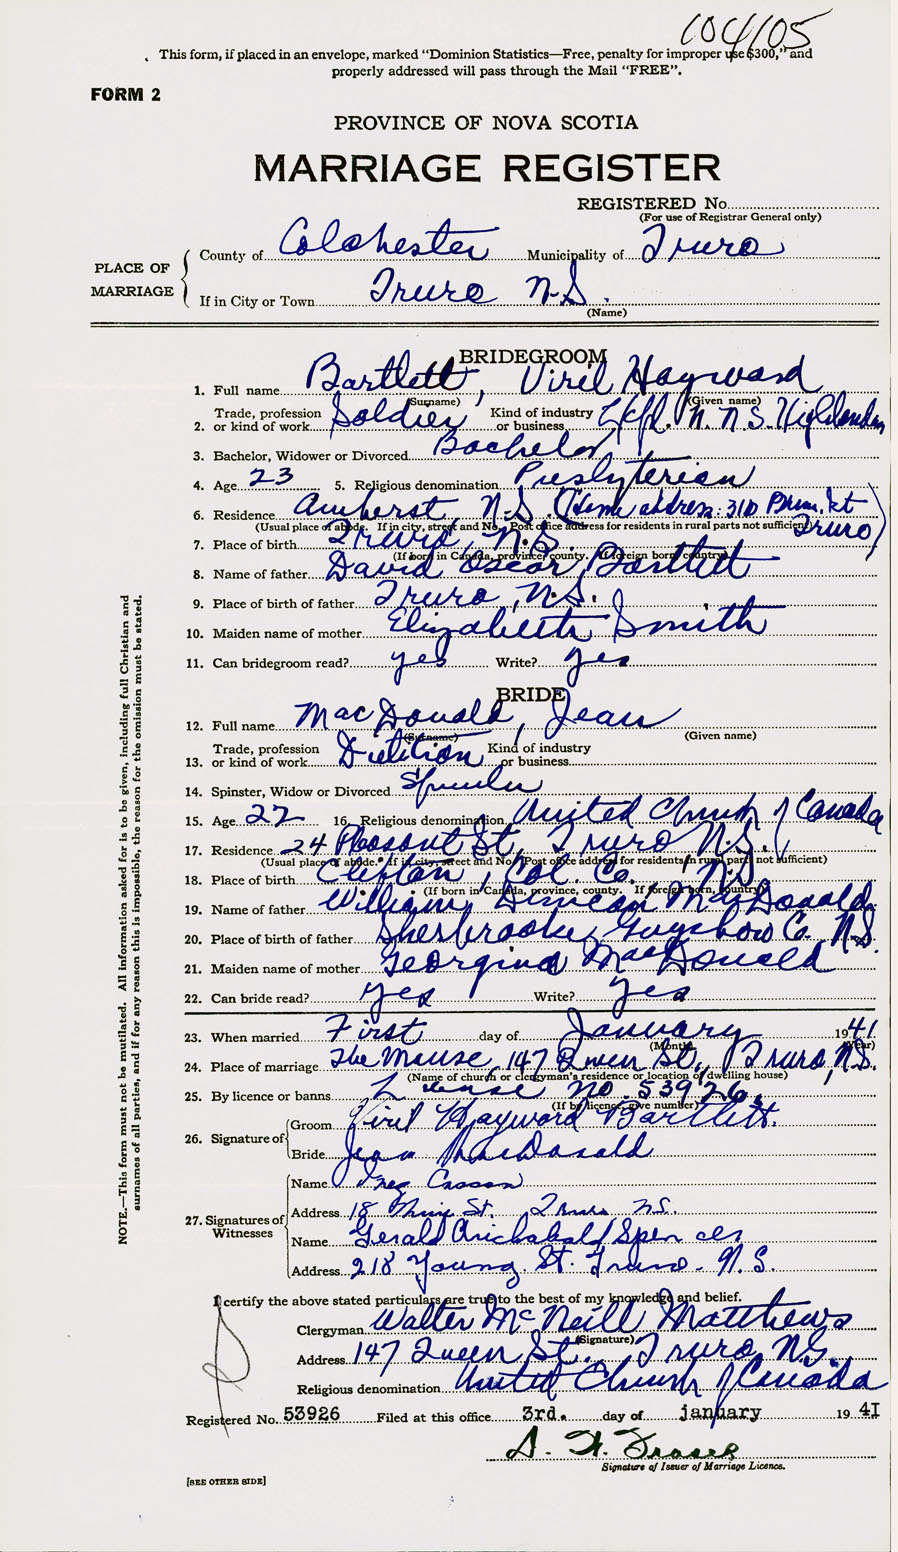 104105
This form, if placed in an envelope, marked "Dominion Statistics—Free, penalty for improper use $300," and
properly addressed will pass through the Mail "FREE".
FORM 2
PROVINCE OF NOVA SCOTIA
MARRIAGE REGISTER
REGISTERED No.
(For use of Registrar General only)
PLACE OF MARRIAGE
County of Colchester Municipality of Truro
If in City or Town Truro N.S.
(Name)
BRIDEGROOM
1. Full name Bartlett, Viril Hayward
(Surname) (Given name)
2. Trade, profession or kind of work Soldier Kind of industry or business N.N.S. Highlanders
3. Bachelor, Widower or Divorced Bachelor
4. Age 23 5. Religious denomination Presbyterian
6. Residence Amherst, N.S. (Home address: 310 St Truro)
(Usual place of abode. If in city, street and No. Post office address for residents in rural parts not sufficient)
7. Place of birth Truro, N.S.
(If born in Canada, province, county. If foreign born, country)
8. Name of father David Oscar Bartlett
9. Place of birth of father Truro, N.S.
10. Maiden name of mother Elizabeth Smith
11. Can bridegroom read? yes Write? yes
BRIDE
12. Full name MacDonald, Jean
(Surname) (Given name)
13. Trade, profession or kind of work Dietition Kind of industry or business
14. Spinster, Widow or Divorced Spinster
15. Age 22 16. Religious denomination United Church of Canada
17. Residence 24 Pleasant St, Truro N.S.
(Usual place of abode. If in city, street and No. Post office address for residents in rural parts not sufficient)
18. Place of birth Clifton, Col. Co. N.S.
(If born in Canada, province, county. If foreign born, country)
19. Name of father William Duncan MacDonald
20. Place of birth of father Sherbrooke, Guysboro Co. N.S.
21. Maiden name of mother Georgina MacDonald
22. Can bride read? Yes Write? Yes
23. When married First day of January 1941
(Month) (Year)
24. Place of marriage The Manse, 147 Queen St., Truro, N.S.
(Name of church or clergyman's residence or location of dwelling house)
25. By licence or banns License No. 53926.
(If by licence, give number)
26. Signature of
Groom Viril Hayward Bartlett.
Bride Jean MacDonald
27. Signatures of Witnesses
Name
Address 18 St. Truro N.S.
Name Gerald Archibald Spencer
Address 218 Young St. Truro. N.S.
I certify the above stated particulars are true to the best of my knowledge and belief.
Clergyman Walter McNeill Matthews
(Signature)
Address 147 Queen St., Truro N.S.
Religious denomination United Church of Canada
Registered No. 53926 Filed at this office 3rd. day of january 1941
Signature of Issuer of Marriage Licence.
[SEE OTHER SIDE]
NOTE.—This form must not be mutilated. All information asked for is to be given, including full Christian and
surnames of all parties, and if for any reason this is impossible, the reason for the omission must be stated.